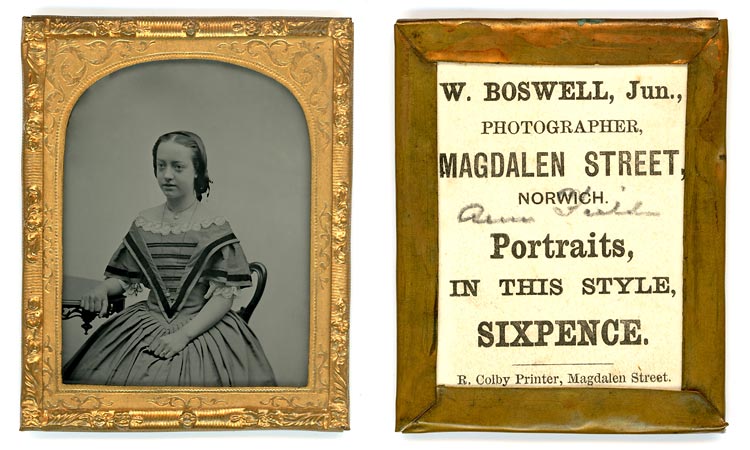 W. BOSWELL, Jun.,
PHOTOGRAPHER,
MAGDALEN STREET,
NORWICH.
Ann
Portraits,
IN THIS STYLE,
SIXPENCE.
R. Colby Printer, Magdalen Street.